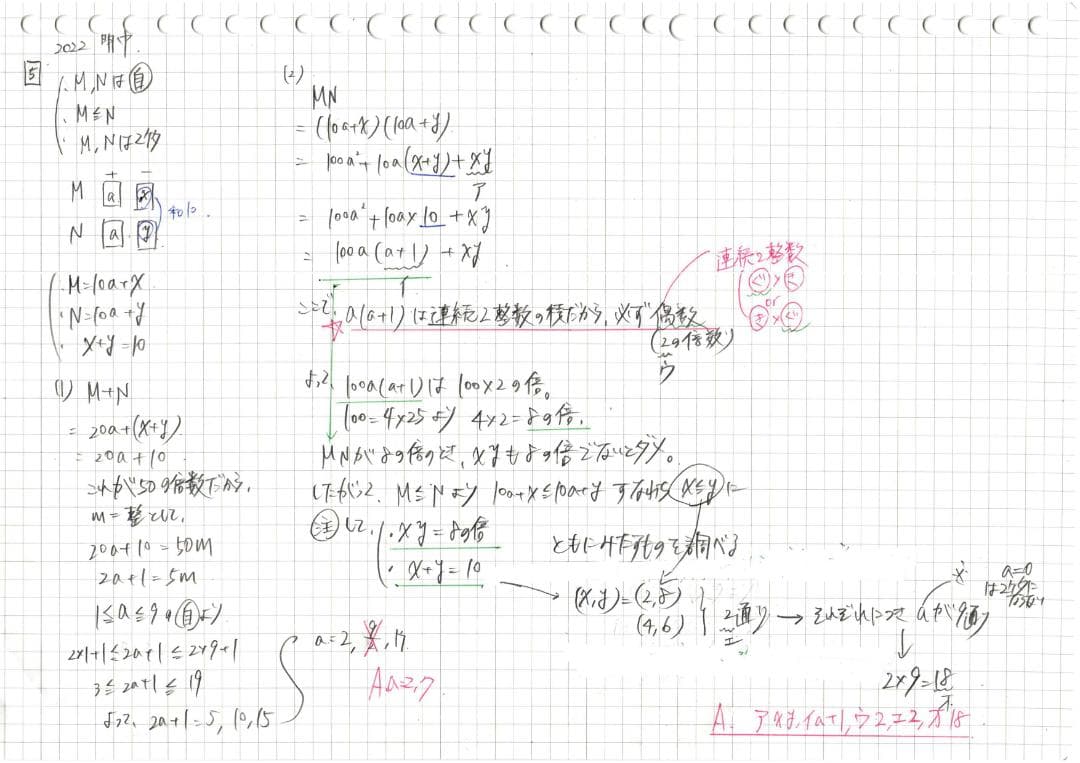 2022 明中.
5
・M,Nは自
・M≦N
・M,Nは2ケタ
十 一
M a x
N a y
和10.
・M=10a+x
・N=10a+y
・x+y=10
(1) M+N
= 20a+(x+y)
= 20a+10
これが50の倍数だから,
m=整として,
20a+10=50m
2a+1=5m
1≦a≦9の自より
2×1+1≦2a+1≦2×9+1
3≦2a+1≦19
よって, 2a+1=5, 10, 15
a=2, 9/2, 7
A a=2,7
(2)
MN
=(10a+x)(10a+y)
= 100a²+10a(x+y)+xy
ア
= 100a²+10a×10+xy
= 100a(a+1)+xy
イ
ここで, a(a+1)は連続2整数の積だから, 必ず偶数
(2の倍数)
ウ
連続2整数
ぐ×き
or
き×ぐ
よって, 100a(a+1)は100×2の倍。
100=4×25より 4×2=8の倍,
MNが8の倍のとき, xyも8の倍でないとダメ。
したがって, M≦Nより 10a+x≦10a+y すなわち x≦yに
注して,
・xy=8の倍
・x+y=10
ともにみたすものを調べる
(x,y)=(2,8)
(4,6)
2通り
エ
→それぞれにつき aが9通り
※ a=0
は2ケタに
ならない
2×9=18
オ
A. アxy, イa+1, ウ2, エ2, オ18